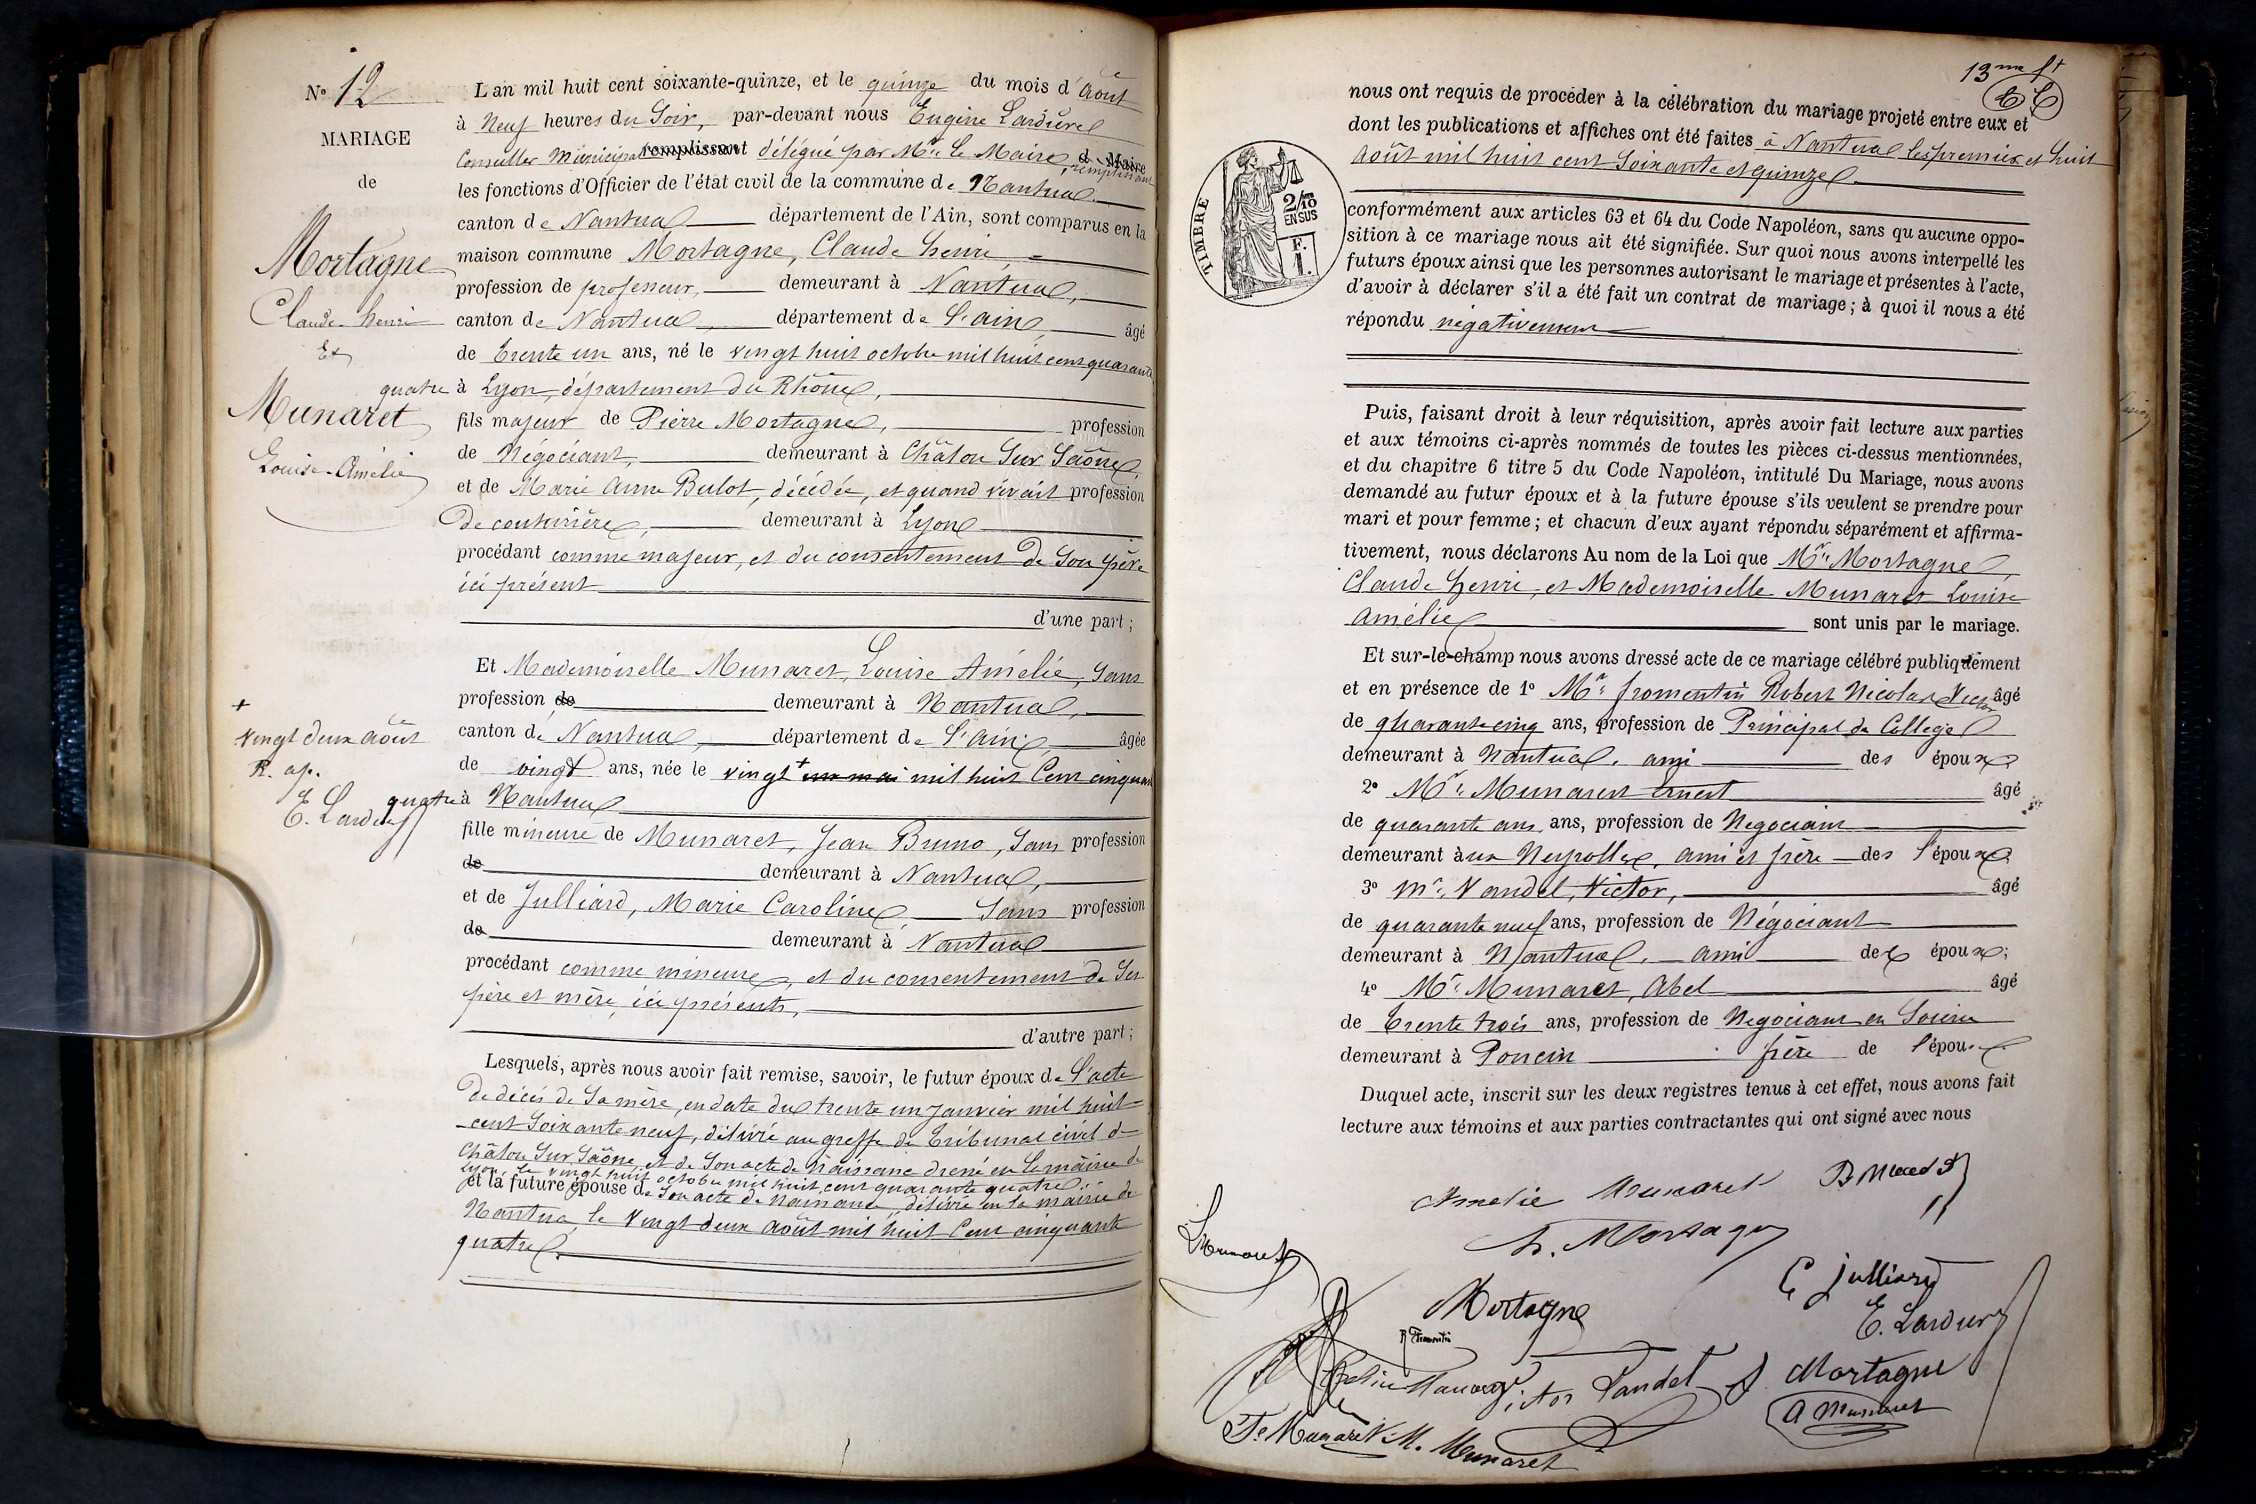 N° 12
MARIAGE
de
Mortagne
Claude henri
Et
Munaret
Louise-Amélie
L'an mil huit cent soixante-quinze, et le quinze du mois d'Août
à Neuf heures du Soir, par-devant nous Eugène Lardurel
Conseiller Municipal remplissant délégué par Mr. le Maire, d Maire remplissant
les fonctions d'Officier de l'état civil de la commune de Nantua
canton de Nantua département de l'Ain, sont comparus en la
maison commune Mortagne, Claude henri,
profession de professeur, demeurant à Nantua,
canton de Nantua, département de l'ain, âgé
de trente un ans, né le vingt huit octobre mil huit cent quarante
quatre à Lyon, département du Rhône,
fils majeur de Pierre Mortagne, profession
de Négociant, demeurant à Châlon Sur Saône,
et de Marie Anne Bulot, décédée, et quand vivait profession
de couturière, demeurant à Lyon
procédant comme majeur, et du consentement de Son père
ici présent
d'une part ;
Et Mademoiselle Munaret, Louise Amélie, Sans
profession de demeurant à Nantua,
canton de Nantua, département de l'ain, âgée
de vingt ans, née le vingt + un mai mil huit Cent cinquante
quatre à Nantua
+
vingt deux août
R. ap.
E. Lardurel
fille mineure de Munaret, Jean Bruno, Sans profession
de demeurant à Nantua,
et de Julliard, Marie Caroline Sans profession
de demeurant à Nantua
procédant comme mineure, et du consentement de Ses
père et mère, ici présents,
d'autre part ;
Lesquels, après nous avoir fait remise, savoir, le futur époux de l'acte
de décès de Sa mère, en date du trente un janvier mil huit
cent Soixante neuf, délivré au greffe du tribunal civil de
Châlon Sur Saône, et de Son acte de Naissance dressé en la mairie de
Lyon, le vingt huit octobre mil huit cent quarante quatre
et la future épouse de Son acte de Naissance, délivré en la mairie de
Nantua, le Vingt deux Août mil huit Cent cinquante
quatre.
13me ft
EL
nous ont requis de procéder à la célébration du mariage projeté entre eux et
dont les publications et affiches ont été faites à Nantua les premier et huit
Août mil huit cent Soixante et quinze
TIMBRE
2/10
EN SUS
F.
1.
conformément aux articles 63 et 64 du Code Napoléon, sans qu'aucune oppo-
sition à ce mariage nous ait été signifiée. Sur quoi nous avons interpellé les
futurs époux ainsi que les personnes autorisant le mariage et présentes à l'acte,
d'avoir à déclarer s'il a été fait un contrat de mariage ; à quoi il nous a été
répondu négativement
Puis, faisant droit à leur réquisition, après avoir fait lecture aux parties
et aux témoins ci-après nommés de toutes les pièces ci-dessus mentionnées,
et du chapitre 6 titre 5 du Code Napoléon, intitulé Du Mariage, nous avons
demandé au futur époux et à la future épouse s'ils veulent se prendre pour
mari et pour femme ; et chacun d'eux ayant répondu séparément et affirma-
tivement, nous déclarons Au nom de la Loi que Mr. Mortagne,
Claude henri, et Mademoiselle Munaret Louise
Amélie sont unis par le mariage.
Et sur-le-champ nous avons dressé acte de ce mariage célébré publiquement
et en présence de 1° Mr. fromentin Robert Nicolas Victor âgé
de quarante cinq ans, profession de Principal du Collége
demeurant à Nantua, ami des époux
2° Mr. Munaret Ernest âgé
de quarante ans ans, profession de Négociant
demeurant à ux Neyrolles, ami et frère des l'épouse
3° Mr. Vandel, Victor, âgé
de quarante neuf ans, profession de Négociant
demeurant à Nantua, ami des époux ;
4° Mr. Munaret, Abel âgé
de trente trois ans, profession de Négociant en Soierie
demeurant à Poncin frère de l'épouse
Duquel acte, inscrit sur les deux registres tenus à cet effet, nous avons fait
lecture aux témoins et aux parties contractantes qui ont signé avec nous
Amelie Munaret
h. Mortagne
Munaret
Mortagne
C Julliard
R Fromentin
E. Lardurel
Victor Vandel
Mortagne
A Munaret
Munaret
M. Munaret